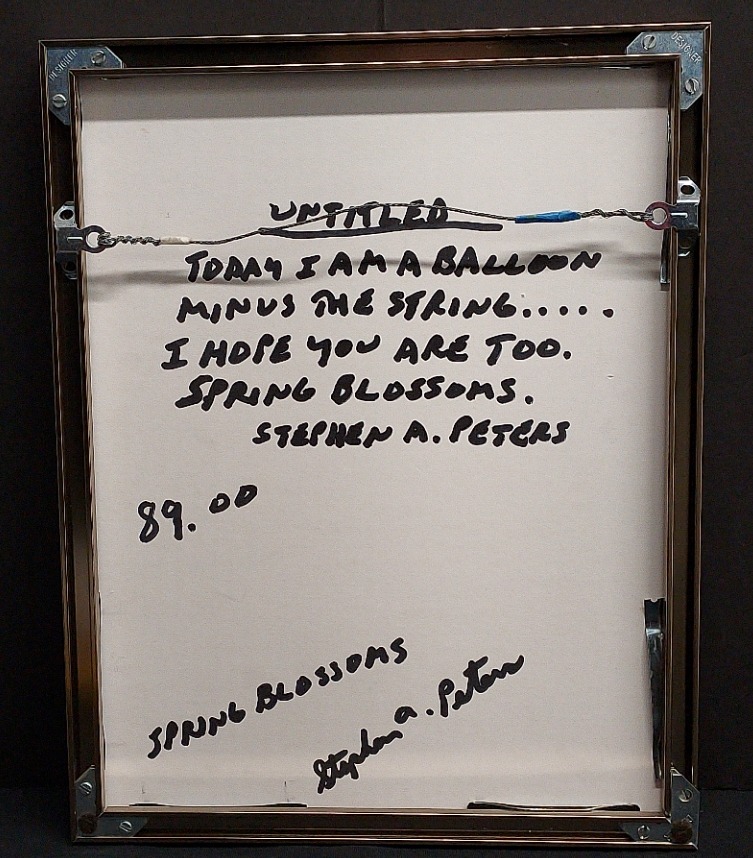 DESIGNER
DESIGNER
UNTITLED
TODAY I AM A BALLOON
MINUS THE STRING.....
I HOPE YOU ARE TOO.
SPRING BLOSSOMS.
STEPHEN A. PETERS
89.00
SPRING BLOSSOMS
Stephen A. Peters